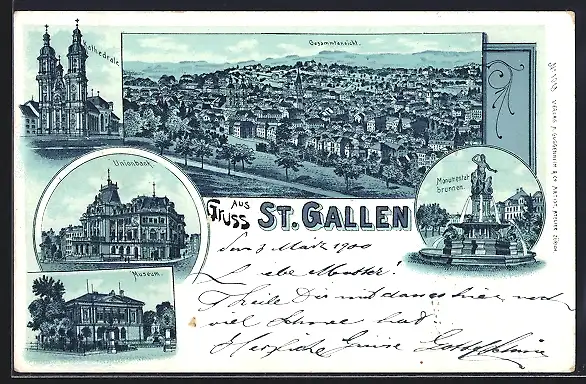 Kathedrale
Gesammtansicht.
Unionbank.
Museum
Monumental-
brunnen.
Gruss AUS ST. GALLEN
VERLAG F. GUGGENHEIM & Co
ZÜRICH
den 3 März 1900
Liebe Mutter!
Theile Dir mit dass es hier noch
viel Schnee hat.
Herzliche Grüsse